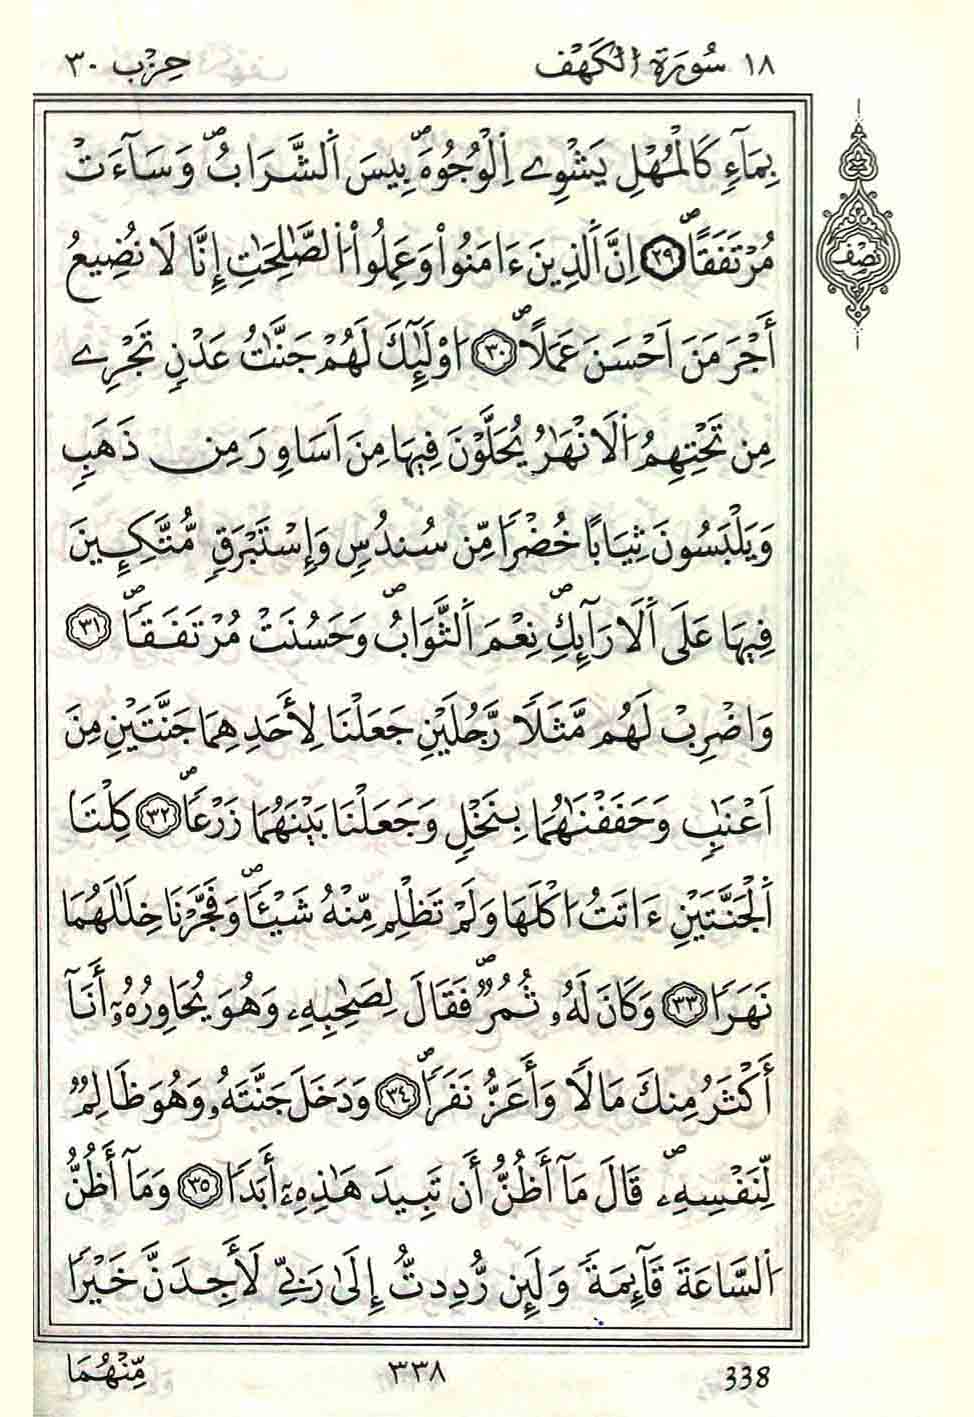 ١٨ سُورَةُ الْكَهْف حِزْب ٣٠
بِمَآءٖ كَالْمُهْلِ يَشْوِے اِ۬لْوُجُوهَۖ بِيسَ اَ۬لشَّرَابُۖ وَسَآءَتْ
مُرْتَفَقاًۖ ۝٢٩ اِنَّ اَ۬لذِينَ ءَامَنُواْ وَعَمِلُواْ اُ۬لصَّٰلِحَٰتِ إِنَّا لَا نُضِيعُ
نِصْف
أَجْرَ مَنَ اَحْسَنَ عَمَلاًۖ ۝٣٠ اُوْلَٰٓئِكَ لَهُمْ جَنَّٰتُ عَدْنٖ تَجْرِے
مِن تَحْتِهِمُ اُ۬لَانْهَٰرُ يُحَلَّوْنَ فِيهَا مِنَ اَسَاوِرَ مِن ذَهَبٖ
وَيَلْبَسُونَ ثِيَاباً خُضْراٗ مِّن سُندُسٖ وَإِسْتَبْرَقٖ مُّتَّكِـِٕينَ
فِيهَا عَلَى اَ۬لَارَآئِكِۖ نِعْمَ اَ۬لثَّوَابُۖ وَحَسُنَتْ مُرْتَفَقاٗۖ ۝٣١
وَاضْرِبْ لَهُم مَّثَلاٗ رَّجُلَيْنِ جَعَلْنَا لِأَحَدِهِمَا جَنَّتَيْنِ مِنَ
اَعْنَٰبٖ وَحَفَفْنَٰهُمَا بِنَخْلٖ وَجَعَلْنَا بَيْنَهُمَا زَرْعاٗۖ ۝٣٢ كِلْتَا
اَ۬لْجَنَّتَيْنِ ءَاتَتُ ا۟كْلَهَا وَلَمْ تَظْلِم مِّنْهُ شَيْـٔاٗۖ وَفَجَّرْنَا خِلَٰلَهُمَا
نَهَراٗ ۝٣٣ وَكَانَ لَهُۥ ثُمُرٞۖ فَقَالَ لِصَٰحِبِهِۦ وَهُوَ يُحَاوِرُهُۥٓ أَنَآ
أَكْثَرُ مِنكَ مَالاٗ وَأَعَزُّ نَفَراٗۖ ۝٣٤ وَدَخَلَ جَنَّتَهُۥ وَهُوَ ظَالِمٞ
لِّنَفْسِهِۦۖ قَالَ مَآ أَظُنُّ أَن تَبِيدَ هَٰذِهِۦٓ أَبَداٗ ۝٣٥ وَمَآ أَظُنُّ
اُ۬لسَّاعَةَ قَآئِمَةٗ وَلَئِن رُّدِدتُّ إِلَىٰ رَبِّے لَأَجِدَنَّ خَيْراٗ
مِّنْهُمَا
٣٣٨ 338